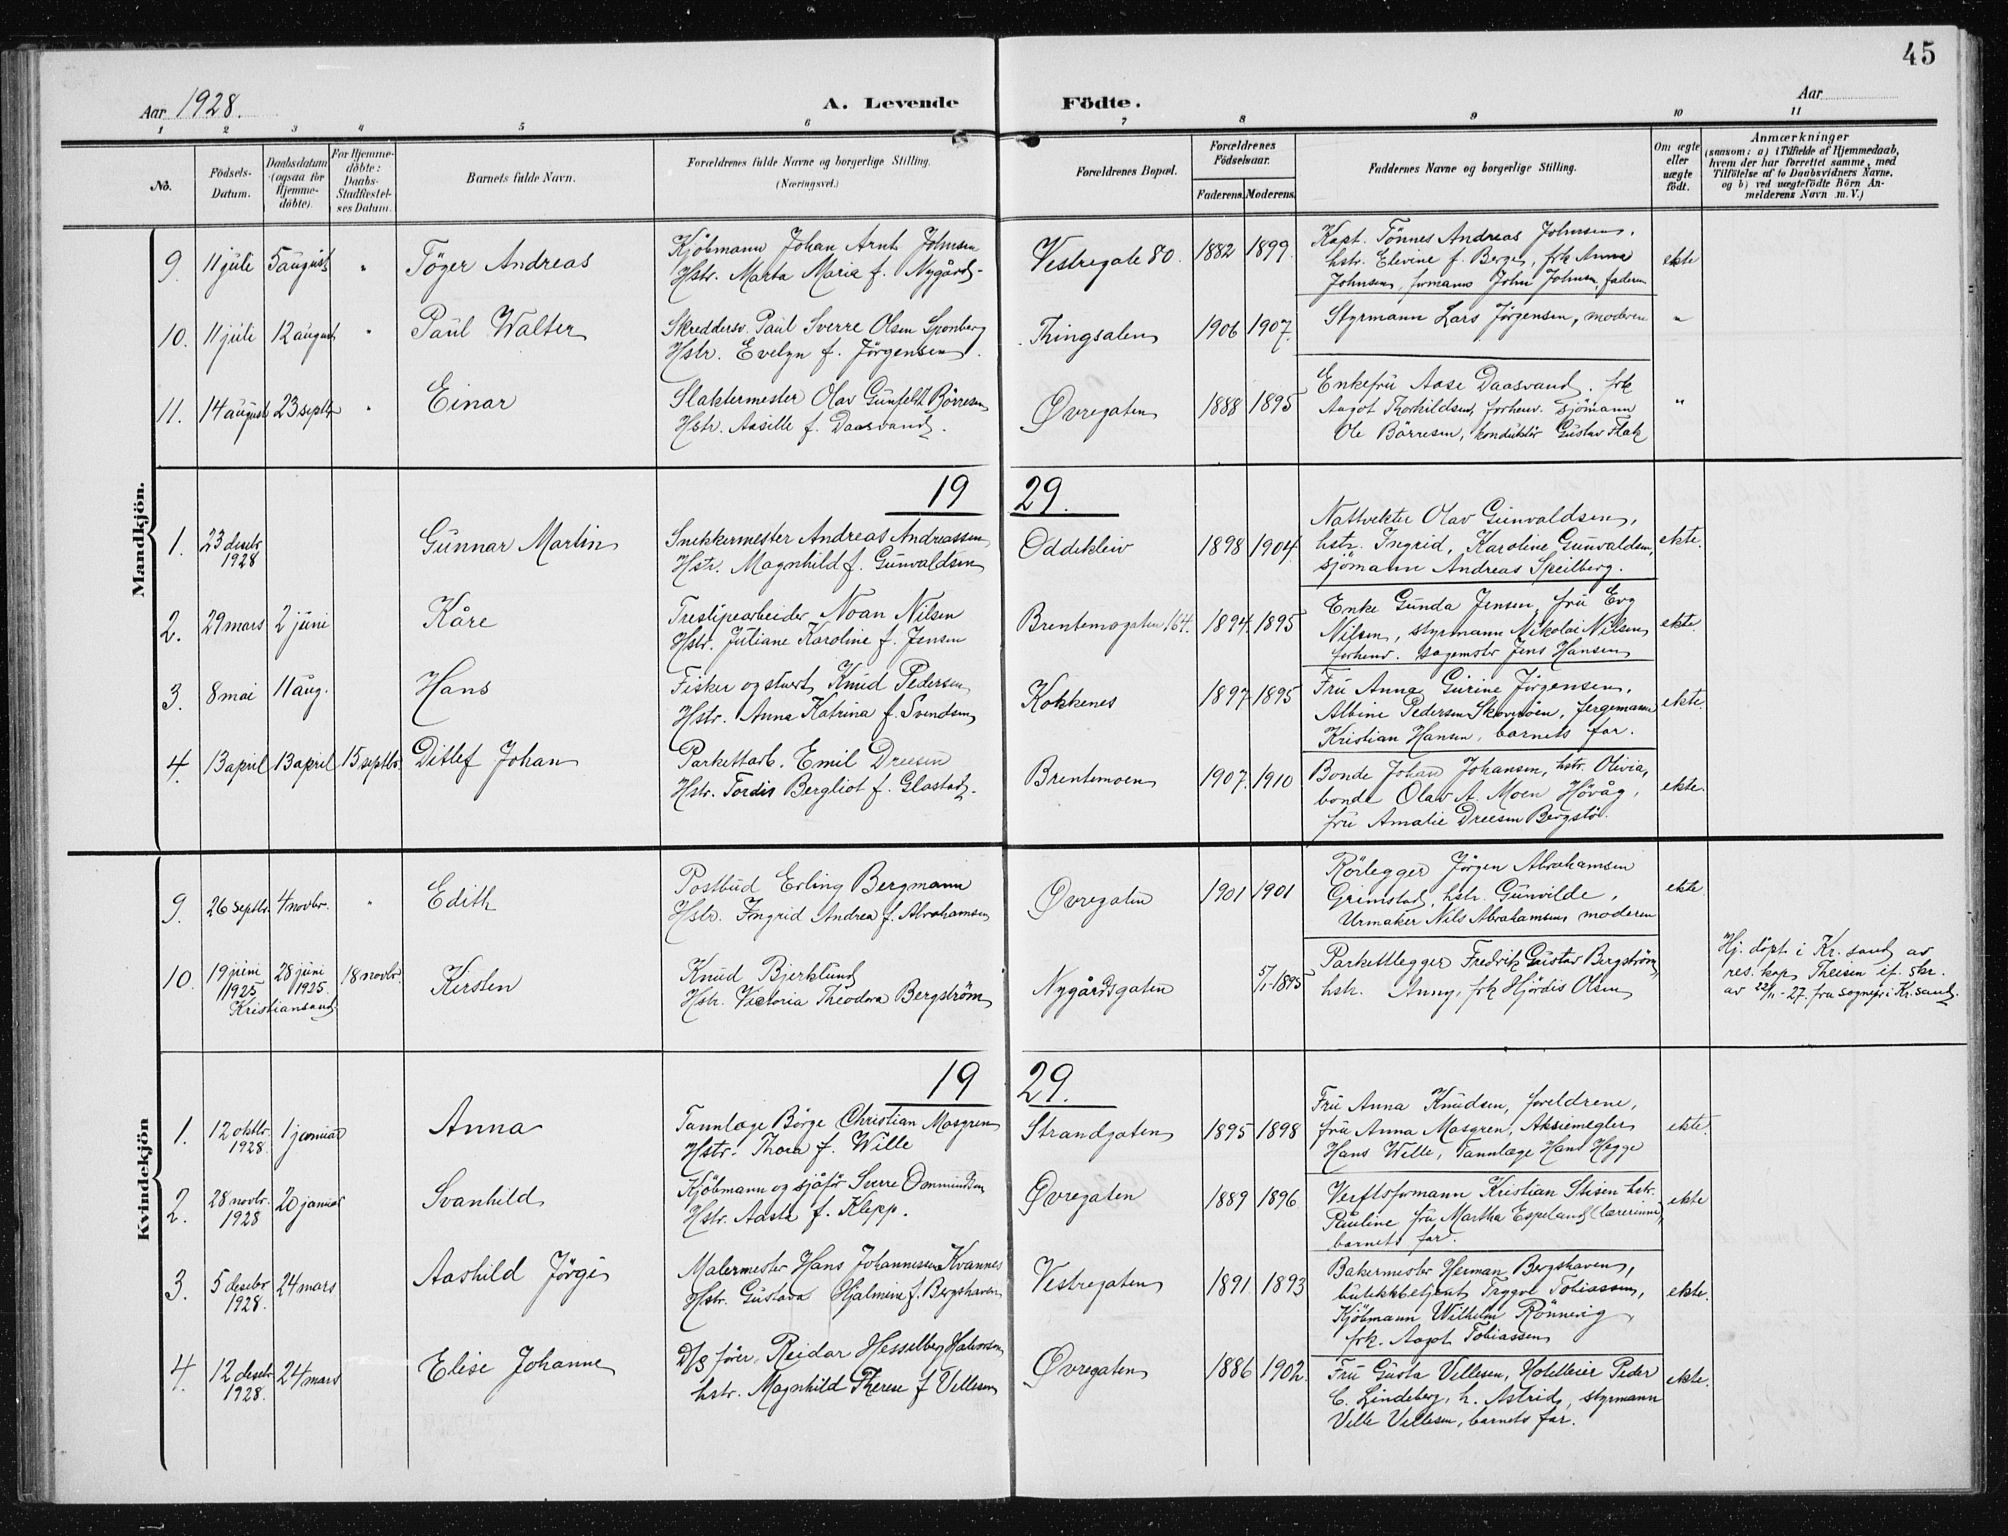 45
Aar 1928.
A. Levende Födte.
Aar
1 2 3 4 5 6 7 8 9 10 11
No.
Födsels-Datum.
Daabsdatum (ogsaa for Hjemme-döbte).
For Hjemme-döbte: Daabs-Stadfæstel-ses Datum.
Barnets fulde Navn.
Forældrenes fulde Navne og borgerlige Stilling. (Næringsvei.)
Forældrenes Bopæl.
Forældrenes Födselsaar.
Faderens. Moderens.
Faddernes Navne og borgerlige Stilling.
Om ægte eller uægte födt.
Anmærkninger
(saasom: a) i Tilfælde af Hjemmedaab, hvem der har forrettet samme, med Tilföielse af to Daabsvidners Navne, og b) ved uægtefödte Börn An-melderens Navn m. V.)
Mandkjön.
9. 11 juli 5 august " Töger Andreas
Kjöbmann Johan Arnt Johnsen
Hstr. Marta Maria f. Nygård.
Vestregate 80. 1882 1899
Kapt. Tönnes Andreas Johnsen,
hstr. Elevine f. Berge, frk Anna
Johnsen, formann John Johnsen, faderen
ekte
10. 11 juli 12 august " Paul Walter
Skreddersv. Paul Sverre Olsen Sponberg
Hstr. Evelyn f. Jörgensen.
Tingsalen 1906 1907.
Styrmann Lars Jörgensen, moderen
"
11. 14 august 23 septbr " Einar
Slaktermester Olav Gunfeldt Börresen
Hstr. Aasille f. Daasvand.
Øvregaten 1888 1895
Enkefru Aase Daasvand. frk
Aagot Thorkildsen, forhenv. sjömann
Ole Börresen, konduktör Gustav Flak
"
19 29.
1. 23 desbr 1928 Gunnar Martin
Snekkermester Andreas Andreassen
Hstr. Magnhild f. Gunvaldsen
Oddekleiv 1898 1904.
Nattvekter Olav Gunvaldsen,
hstr. Ingrid, Karoline Gunvaldsen,
sjömann Andreas Speilberg.
ekte.
2. 29 mars 2 juni Kåre
Treslipearbeider Noan Nilsen
Hstr. Juliane Karoline f. Jensen
Brentemogaten 164. 1894. 1895
Enke Gunda Jensen, fru Eva
Nilsen, styrmann Nikolai Nilsen,
forhenv. sagemstr Jens Hansen
ekte.
3. 8 mai 11 aug. Hans
Fisker og stuert Knud Pedersen
Hstr. Anna Katrina f. Svendsen
Kokkenes 1897 1895
Fru Anna Gurine Jörgensen,
Albine Pedersen Skoveröen, fergemann
Kristian Hansen, barnets far.
ekte.
4. 13 april 13 april 15 septbr. Ditlef Johan
Parkettarb. Emil Dreesen
Hstr. Tordis Bergliot f. Glastad.
Brentemoen 1907. 1910
Bonde Johan Johansen, hstr. Olivia,
bonde Olav A. Moen Hövåg,
fru Amalie Dreesen Bergstö.
ekte.
Kvindekjön
9. 26 septbr. 4 novbr. " Edith
Postbud Erling Bergmann
Hstr. Ingrid Andrea f. Abrahamsen
Øvregaten 1901 1901
Rörlegger Jörgen Abrahamsen
Grimstad, hstr. Gunvilde,
Urmaker Nils Abrahamsen, moderen
ekte
10. 19 juni 1925 Kristiansand 28 juni 1925. 18 novbr Kirsten
Knud Bjerklund
Hstr. Victoria Theodora Bergström
Nygårdsgaten 5/1-1895
Parkettlegger Fredrik Gustav Bergström,
hstr. Anny, frk Hjördis Olsen
Hj. döpt i Kr.sand av
res. kap Theisen if. skr.
av 22/11-27. fra sognepr i Kr.sand.
19 29.
1. 12 oktbr. 1928. 1 januar Anna
Tannlæge Börge Christian Masgren
Hstr. Thora f. Wille
Strandgaten 1895 1898
Fru Anna Knudsen, foreldrene,
fru Anna Masgren, Aksiemegler
Hans Wille, Tannlæge Hans Hegge
ekte.
2. 28 novbr. 1928 20 januar Svanhild
Kjöbmann og sjåför Sverre Ommundsen
Hstr. Aasta f. Klepp.
Øvregaten 1889 1896
Verftsformann Kristian Stisen hstr.
Pauline fru Martha Espeland (lærerinne),
barnets far.
ekte
3. 5 desebr 1928. 24 mars Aashild Jörgi
Malermester Hans Johannesen Kvannes
Hstr. Gustava Hjalmine f. Bergshaven
Vestregaten 1891 1893
Bakermester Herman Bergshaven,
butikkbetjent Trygve Tobiassen,
Kjöbmann Wilhelm Rönnevig
frk. Aagot Tobiassen
ekte.
4. 12 desebr 1928. 24 mars Elise Johanne
D/s förer. Reidar Hesselberg Halvorsen
hstr. Magnhild Therese f. Vellesen
Øvregaten 1886 1902.
Fru Gusta Vellesen, Hotelleier Peder
C. Lindeberg, h. Astrid, styrmann
Velle Vellesen, barnets far.
ekte.